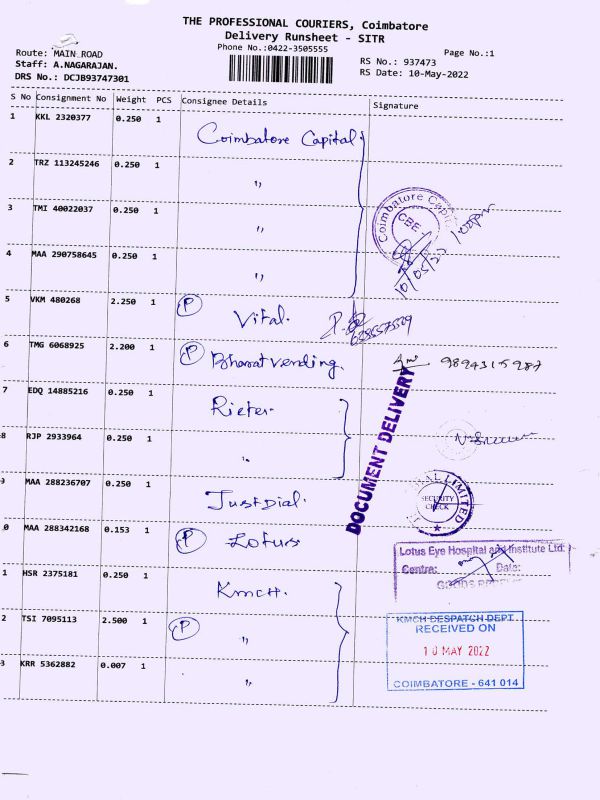 THE PROFESSIONAL COURIERS, Coimbatore
Delivery Runsheet - SITR
Phone No.:0422-3505555
Page No.:1
Route: MAIN ROAD
Staff: A.NAGARAJAN.
DRS No.: DCJB93747301
RS No.: 937473
RS Date: 10-May-2022
S No Consignment No Weight PCS Consignee Details Signature
1 KKL 2320377 0.250 1 Coimbatore Capital
2 TRZ 113245246 0.250 1 "
3 TMI 40022037 0.250 1 "
Coimbatore Capit
CBE.
10/05/22 1:00pm
4 MAA 290758645 0.250 1 "
5 VKM 480268 2.250 1 P Vital.
6 TMG 6068925 2.200 1 P Bharatvending.
7 EDQ 14885216 0.250 1 Rieter
8 RJP 2933964 0.250 1 "
DOCUMENT DELIVERY
9 MAA 288236707 0.250 1 JustDial.
LIMITED
SECURITY
CHECK
0 MAA 288342168 0.153 1 P Lotus
Lotus Eye Hospital and Institute Ltd.
Centre: Date:
1 HSR 2375181 0.250 1 Kmch.
2 TSI 7095113 2.500 1 P "
KMCH DESPATCH DEPT
RECEIVED ON
10 MAY 2022
COIMBATORE - 641 014
3 KRR 5362882 0.007 1 "